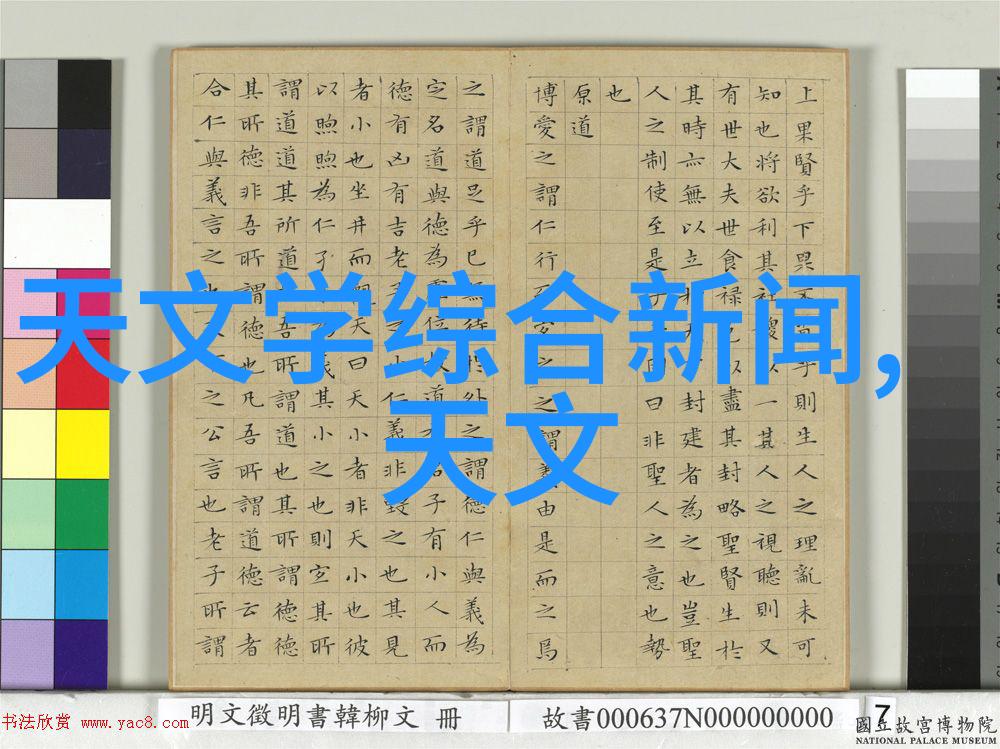 天文学综合新闻,
天文
上果賢乎下果不肖乎則生人之理亂未可
知也將欲利其社稷以一其人之視聽則又
有世大夫世食禄邑以盡其封略聖賢生於
其時亦無以立於天下封建者為之也豈聖
人之制使至是乎曰非聖人之意也勢
也
原道
博愛之謂仁行而宜之之謂義由是而之焉
之謂道足乎已無待於外之謂德仁與義為
定名道與德為虛位故道有君子有小人而
德有凶有吉老子之小仁義非毀之也其見
者小也坐井而觀天曰天小者非天小也彼
以煦煦為仁孑孑為義其小之也則宜其所
謂道道其所道非吾所謂道也其所謂德德
其所德非吾所謂德也凡吾所謂道德云者
合仁與義言之也之公言也老子所謂
明文徵明書韓柳文 冊
故書000637N000000000
7
書法欣赏 www.yac8.com
國立故宮博物院
NATIONAL PALACE MUSEUM